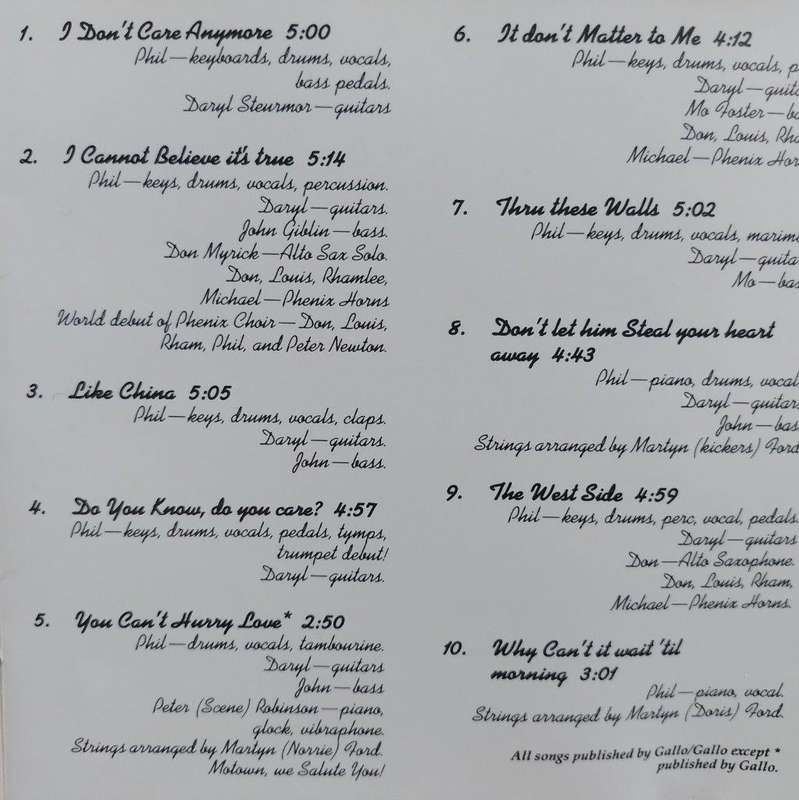 1. I Don't Care Anymore 5:00
Phil—keyboards, drums, vocals,
bass pedals.
Daryl Steurmor—guitars
2. I Cannot Believe it's true 5:14
Phil—keys, drums, vocals, percussion.
Daryl—guitars.
John Giblin—bass.
Don Myrick—Alto Sax Solo.
Don, Louis, Rhamlee,
Michael—Phenix Horns
World debut of Phenix Choir—Don, Louis,
Rham, Phil, and Peter Newton.
3. Like China 5:05
Phil—keys, drums, vocals, claps.
Daryl—guitars.
John—bass.
4. Do You Know, do you care? 4:57
Phil—keys, drums, vocals, pedals, tymps,
trumpet debut!
Daryl—guitars.
5. You Can't Hurry Love* 2:50
Phil—drums, vocals, tambourine.
Daryl—guitars
John—bass
Peter (Scene) Robinson—piano,
glock, vibraphone.
Strings arranged by Martyn (Norrie) Ford.
Motown, we Salute You!
6. It don't Matter to Me 4:12
Phil—keys, drums, vocals,
Daryl—
Mo Foster—
Don, Louis,
Michael—Phenix
7. Thru these Walls 5:02
Phil—keys, drums, vocals,
Daryl—
Mo—
8. Don't let him Steal your heart
away 4:43
Phil—piano, drums,
Daryl—guitars
John—
Strings arranged by Martyn (kickers) Ford
9. The West Side 4:59
Phil—keys, drums, perc, vocal, pedals.
Daryl—guitars
Don—Alto Saxophone.
Don, Louis, Rham,
Michael—Phenix Horns.
10. Why Can't it wait 'til
morning 3:01
Phil—piano, vocal.
Strings arranged by Martyn (Doris) Ford.
All songs published by Gallo/Gallo except *
published by Gallo.